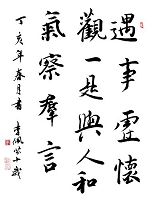 遇事虛懷
觀一是與人和
氣察羣言
丁亥年春月書 李佩